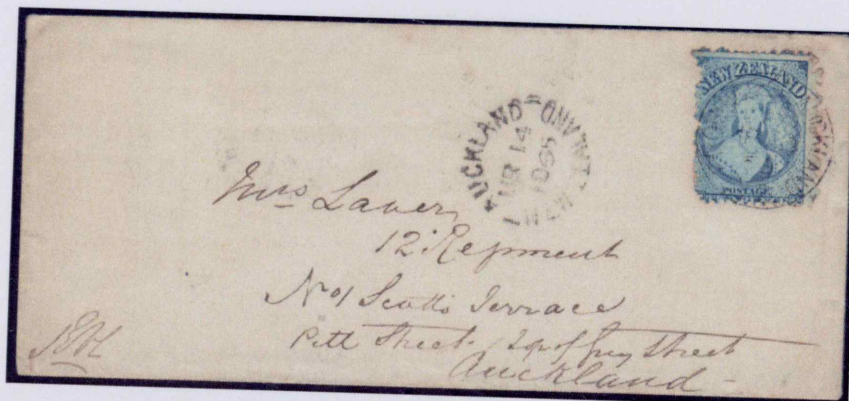 NEW ZEALAND
POSTAGE
AUCKLAND
14
65
NEW ZEALAND
AUCKLAND
Mrs Laver
12 Regiment
No 1 Scotts Terrace
Pitt Street, Street
Auckland